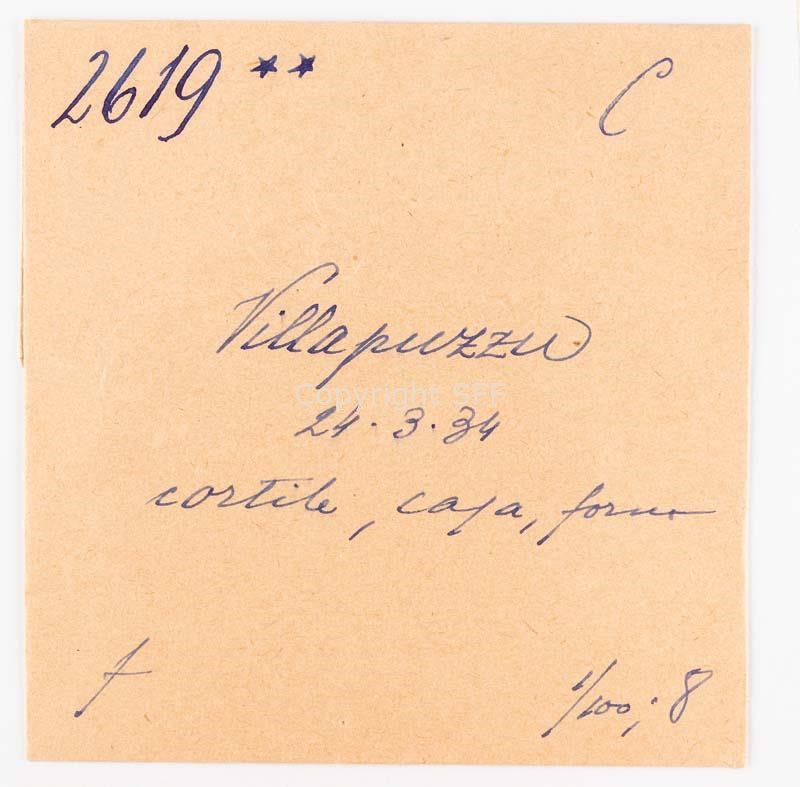 2619 ** C
Villapuzzu
Copyright SFF
24.3.34
cortile, casa, forno
f 1/100; 8